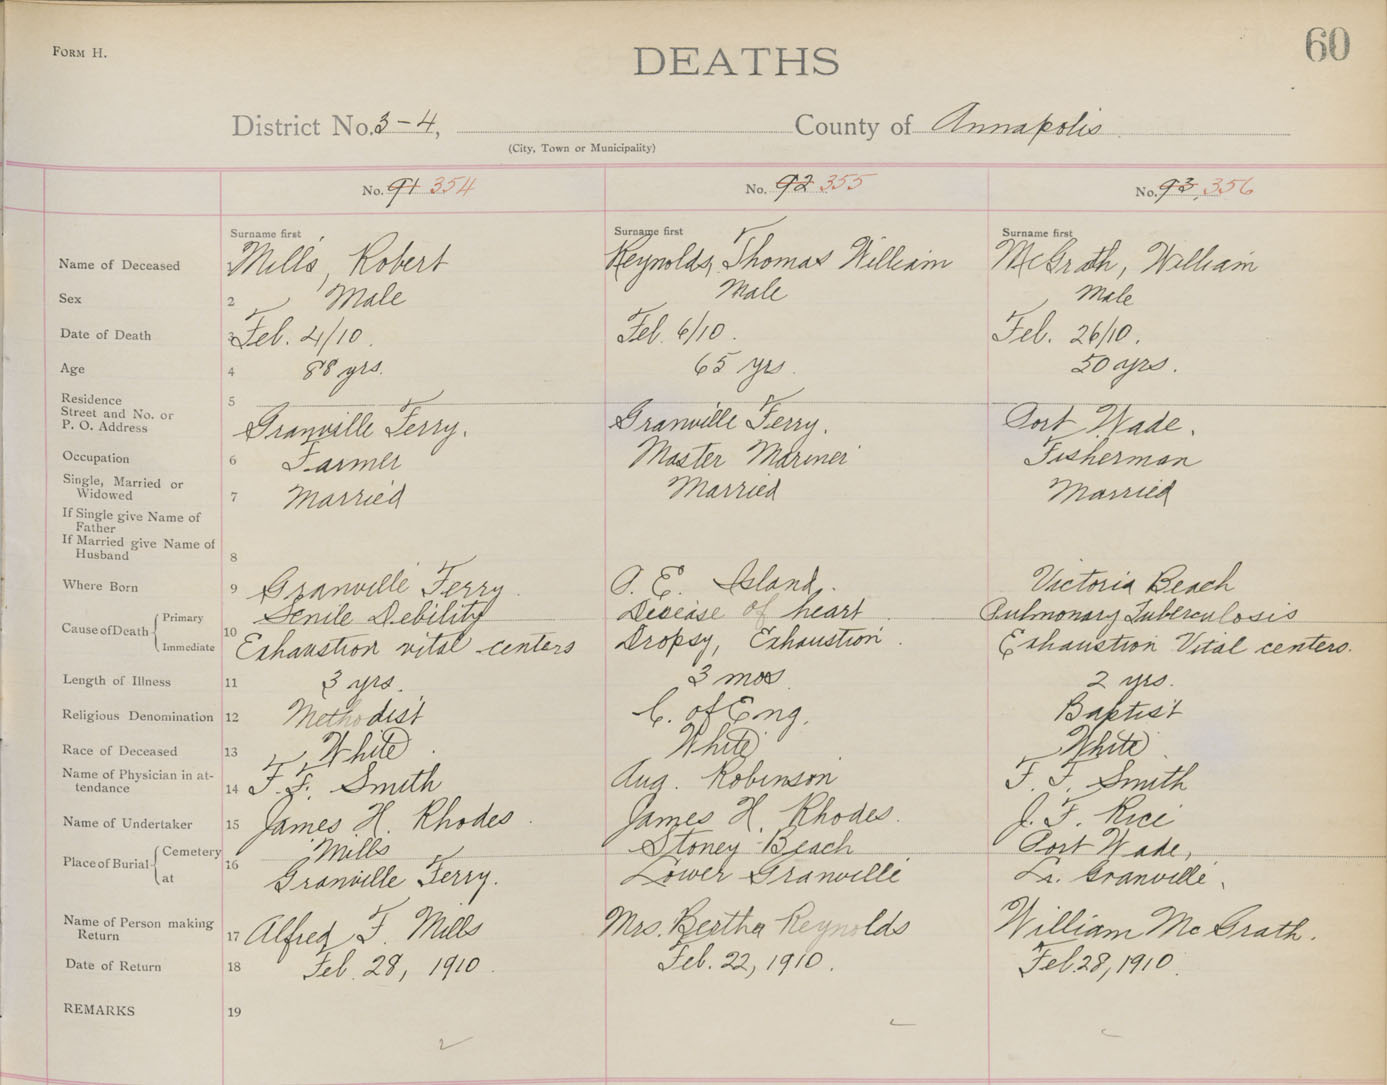 FORM H.
DEATHS
60
District No. 3-4, County of Annapolis
(City, Town or Municipality)
No. 91 354 No. 92 355 No. 93, 356
Surname first Surname first Surname first
Name of Deceased 1 Mills, Robert Reynolds, Thomas William McGrath, William
Sex 2 Male Male Male
Date of Death 3 Feb. 4/10. Feb. 6/10. Feb. 26/10.
Age 4 88 yrs. 65 yrs. 50 yrs.
Residence 5
Street and No. or
P. O. Address Granville Ferry. Granville Ferry. Port Wade.
Occupation 6 Farmer Master Mariner Fisherman
Single, Married or
Widowed 7 Married Married Married
If Single give Name of
Father
If Married give Name of
Husband 8
Where Born 9 Granville Ferry P. E. Island. Victoria Beach
Cause of Death 10 Primary Senile Debility Disease of heart Pulmonary Tuberculosis
Immediate Exhaustion vital centers Dropsy, Exhaustion. Exhaustion Vital centers.
Length of Illness 11 3 yrs. 3 mos 2 yrs.
Religious Denomination 12 Methodist C. of Eng. Baptist
Race of Deceased 13 White. White White
Name of Physician in at-
tendance 14 F. F. Smith Aug. Robinson F. F. Smith
Name of Undertaker 15 James H. Rhodes. James H. Rhodes. J. F. Rice
Place of Burial 16 Cemetery Mills Stoney Beach Port Wade,
at Granville Ferry. Lower Granville Lr. Granville.
Name of Person making
Return 17 Alfred F. Mills Mrs. Bertha Reynolds William McGrath.
Date of Return 18 Feb. 28, 1910. Feb. 22, 1910. Feb. 28, 1910.
REMARKS 19